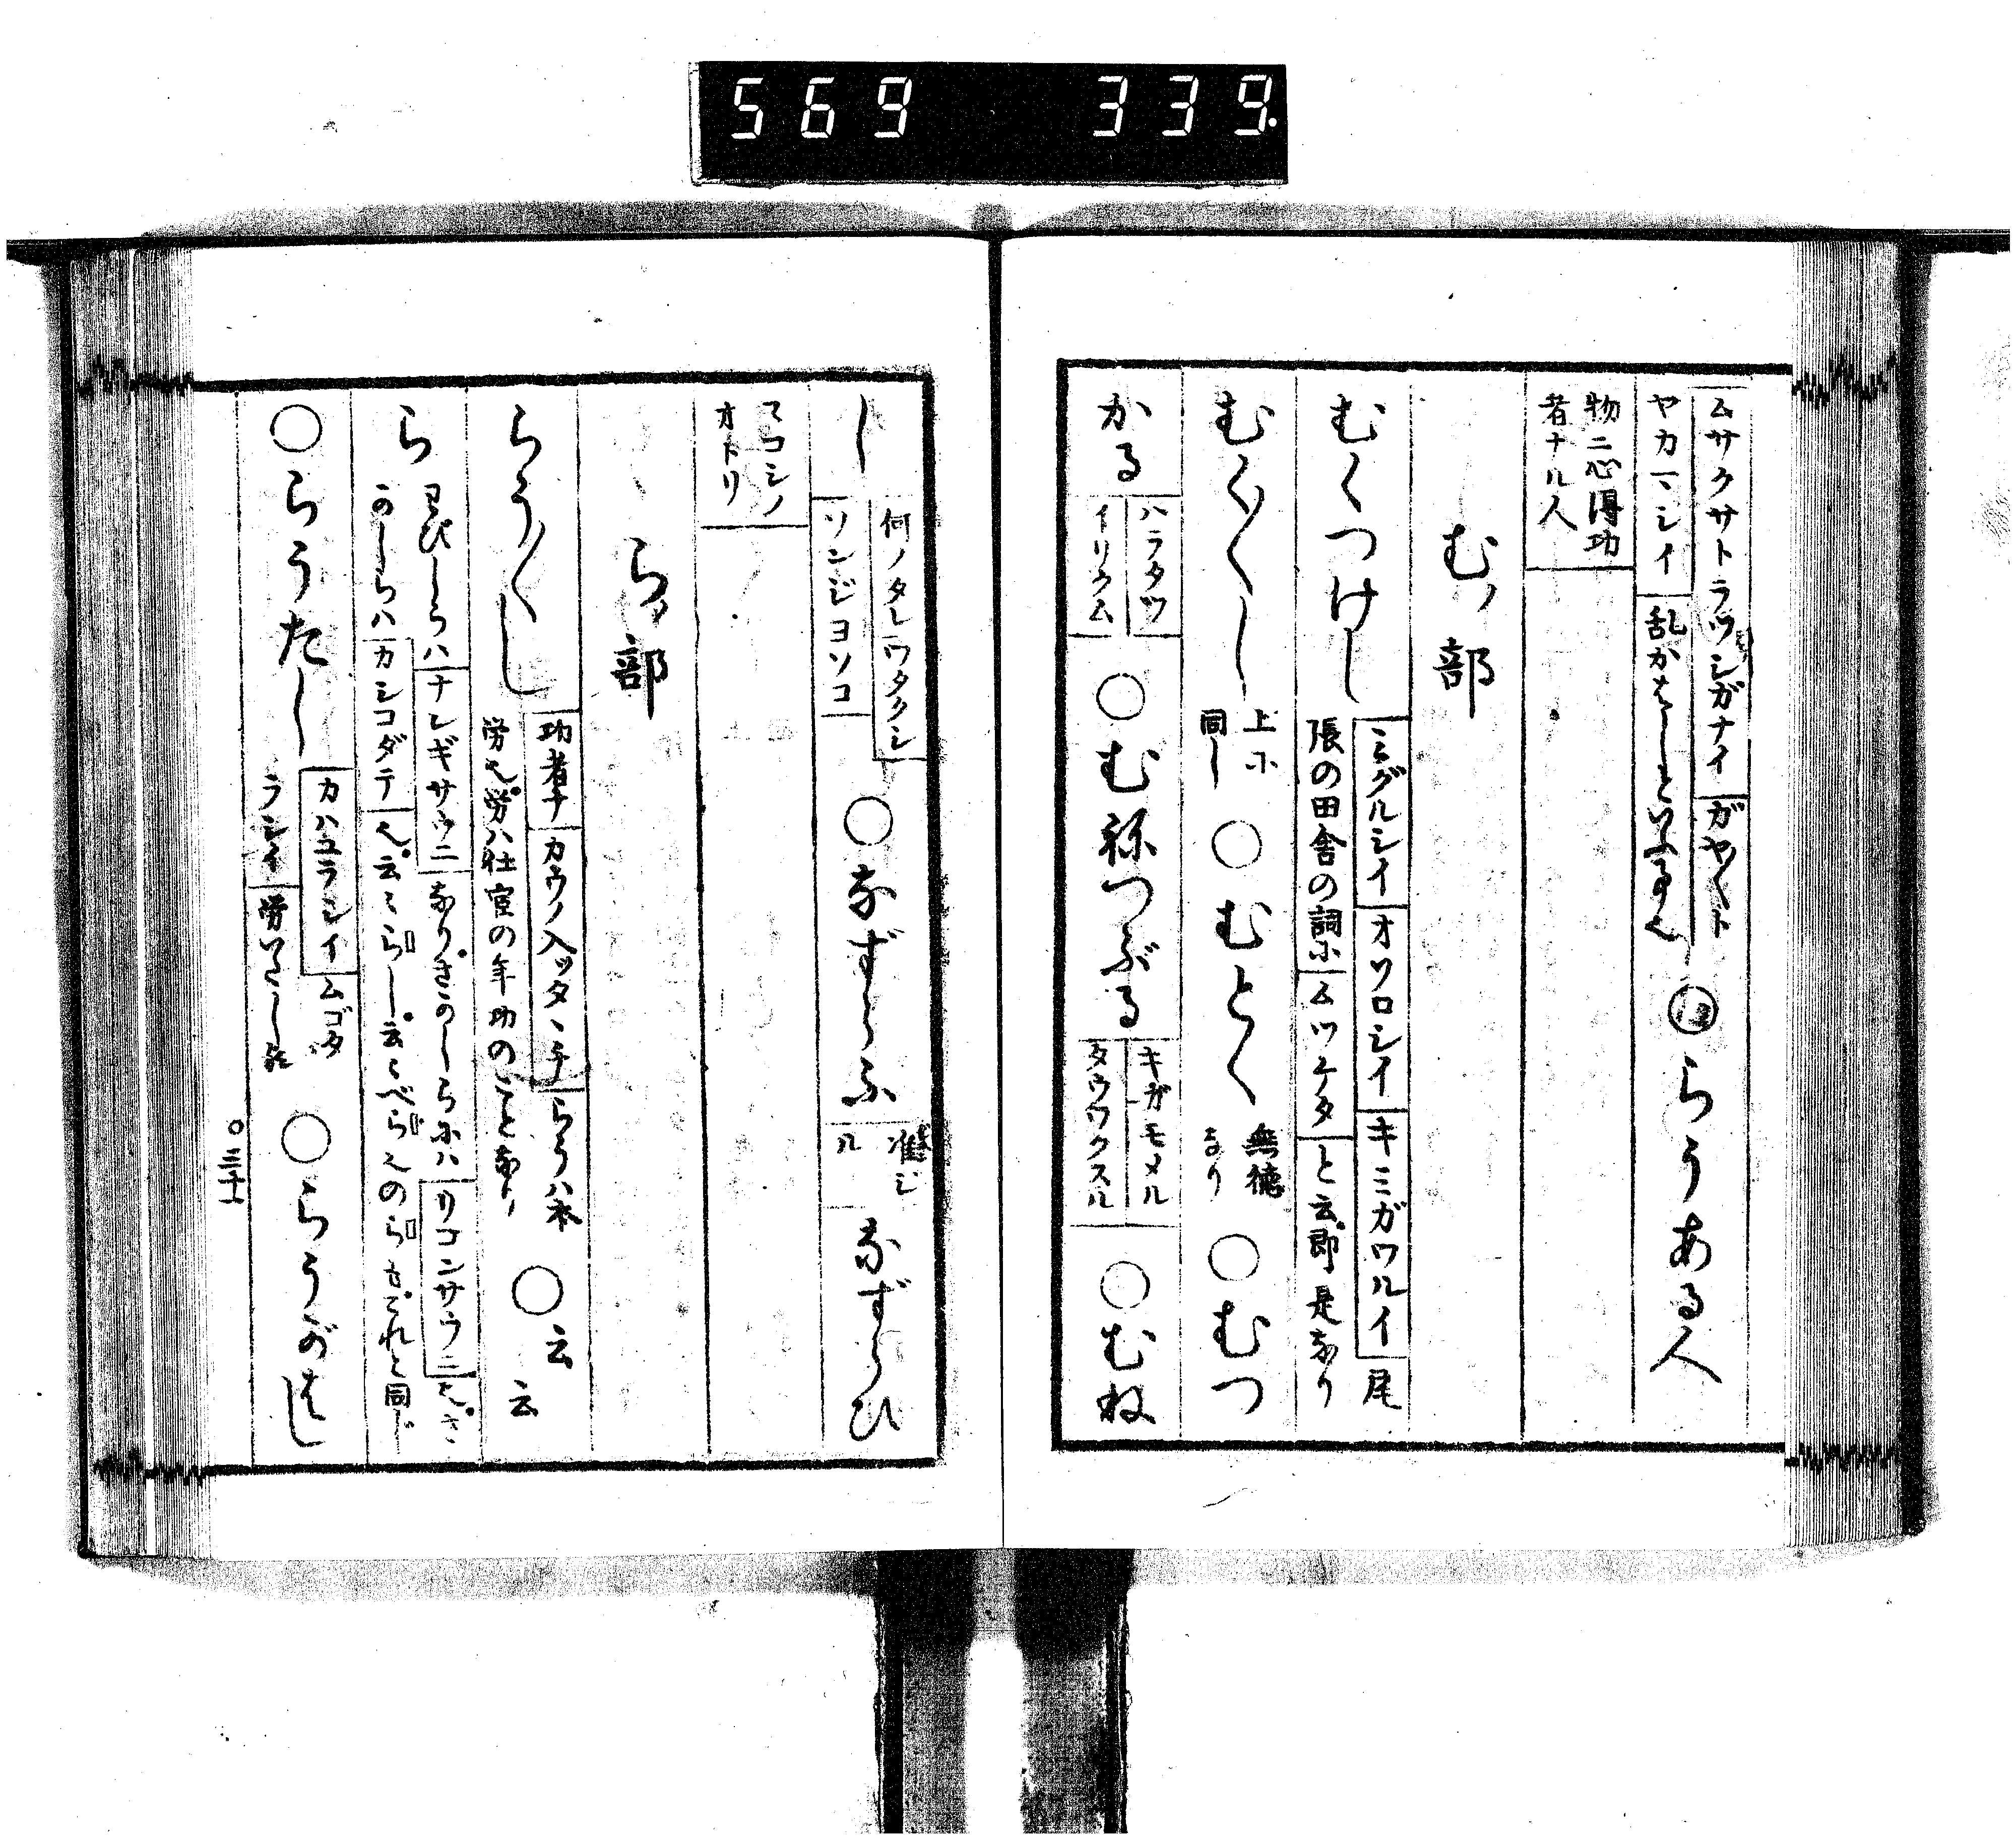 569 339
ムサクサトラツシガナイ ガヤ〱ト
ヤカマシイ 乱かはしといふ事也
らうある人
物ニ心得功
者ナル人
むノ部
むくつけし
ミグルシイ オソロシイ キミガワルイ 尾
張の田舎の詞に ムツケタ と云即是なり
むく〱し
上に
同し
○むとく
無徳
なり
○むつ
かる
ハラタツ
イリクム
○むねつぶる
キガモメル
タウワクスル
○むね
し
何ノタレ ワタクシ
ソンジヨソコ
○なずらふ
准シ
ル
なずらひ
スコシノ
オトリ
らノ部
らう〱し
功者ナ カウノ入ツタヽチ らうハ本
労也労ハ仕官の年功のことなり
○云
云
ら
わびしらハ ナンギサウニ なりさかしらにハ リコンサウニ 也さ
かしらハ カシコダテ 也云々らし云々べら也のらもこれと同じ
○らうたし
カハユラシイ ムゴタ
ラシイ 労いたし
○らうがはし
○三十一